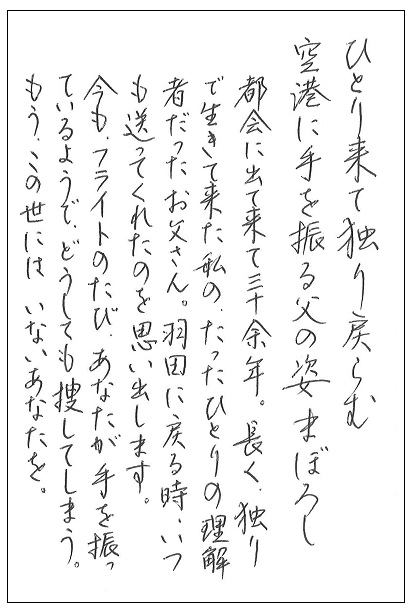 ひとり来て独り戻らむ
空港に手を振る父の姿まぼろし
都会に出て来て三十余年。長く、独り
で生きて来た私の、たったひとりの理解
者だったお父さん。羽田に戻る時、いつ
も送ってくれたのを思い出します。
今も、フライトのたび、あなたが手を振っ
ているようで、どうしても捜してしまう。
もう、この世には いないあなたを。